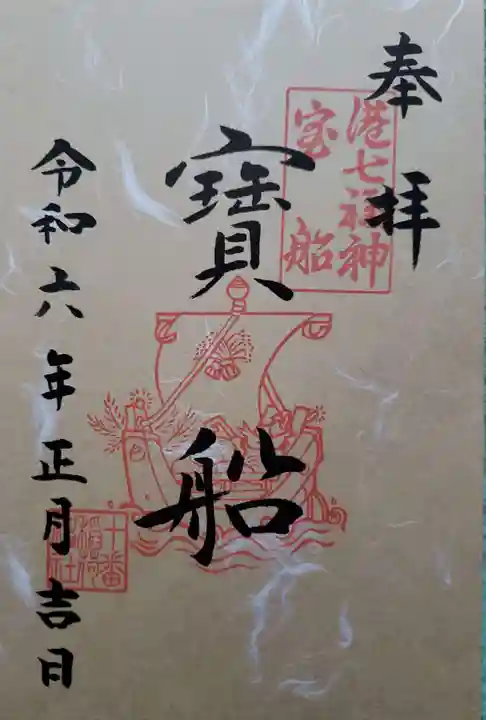 奉拝
港七福神
宝船
寶船
令和六年正月吉日
十番
稲荷
神社